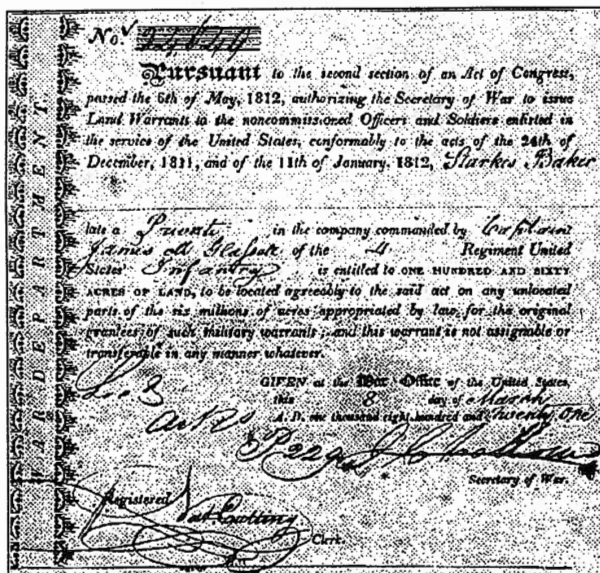 WAR DEPARTMENT.
No. 24649
Pursuant to the second section of an Act of Congress,
passed the 6th of May, 1812, authorizing the Secretary of War to issue
Land Warrants to the noncommissioned Officers and Soldiers enlisted in
the service of the United States, conformably to the acts of the 24th of
December, 1811, and of the 11th of January, 1812, Starkes Baker
late a Private in the company commanded by Captain
James M Glassell of the 4 Regiment United
States' Infantry is entitled to ONE HUNDRED AND SIXTY
ACRES OF LAND, to be located agreeably to the said act on any unlocated
parts of the six millions of acres appropriated by law, for the original
grantees of such military warrants; and this warrant is not assignable or
transferable in any manner whatever.
GIVEN at the War Office of the United States,
this 8 day of March
A. D. one thousand eight hundred and twenty one
J C Calhoun
Secretary of War.
Registered
Clerk.